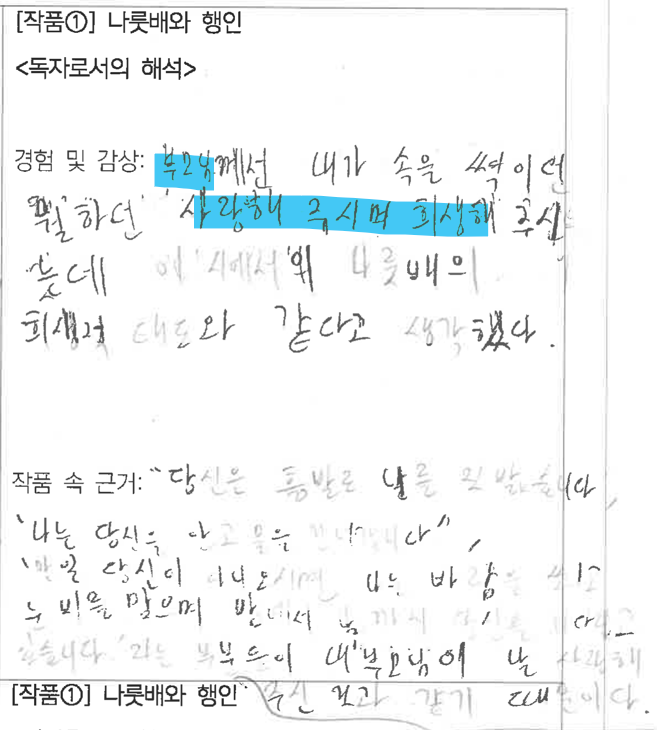 [작품①] 나룻배와 행인
<독자로서의 해석>
경험 및 감상: 부모님께선 내가 속을 썩이던
뭘 하던 사랑해 주시며 희생해 주신
듯데 이 시에서의 나룻배의
희생적 태도와 같다고 생각했다.
작품 속 근거: "당신은 흙발로 나를 짓밟습니다
"나는 당신을 안고 물을 건너갑니다",
"만일 당신이 아니오시면 나는 바람을 쐬고
눈비를 맞으며 밤에서 낮까지 당신을 기다리고
있습니다"라는 부분들이 내 부모님이 날 사랑해
[작품①] 나룻배와 행인 주신 것과 같기 때문이다.